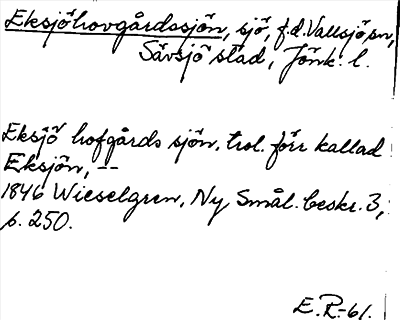 Eksjöhovgårdssjön, sjö, f.d. Vallsjö sn,
Sävsjö stad, Jönk. l.
Eksjö hofgårds sjön, trol. förr kallad
Eksjön, --
1846 Wieselgren, Ny Smål. beskr. 3,
s. 250.
E.R.-61.